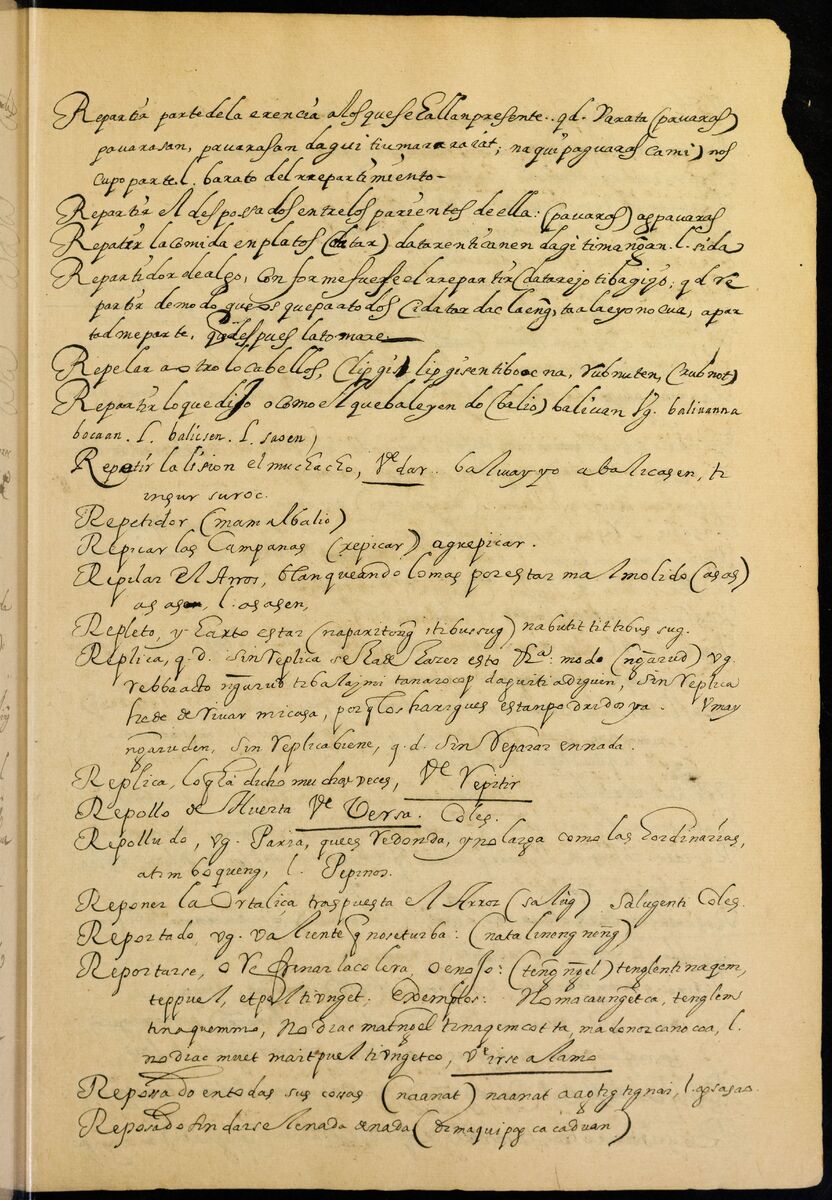 Repartir parte de la erencia a los que se hallan presente.. qd. varata (pavaras)
pavarasan, pavarasan daguitiumararaiat; naquipaguaras cami) nos
cupo parte. l. barato del rrepartimiento-
Repartir el desposados entre los parientes de ella: (pavaras) agpavaras
Repatir la comida en platos (datar) datarenticanen dagitimangan. l. sida
Repartidor de algo, conforme fuese el rrepartir (datarejo tibagijo; qd re
partir de modo que os quepa a todos
tadme parte, que despues la tomare
Repelar a otro lo cabellos, (lipgis lipgisentibooc na, rubnuten, (rubnot)
Repartir lo que dijo o como el que baleyendo (balio) baliuan vg. baliuanna
bocaan. l. balicsen. l. saoen)
Repetir la lision el muchacho, ve dar.. balivayyo abalicasen, ti
ingur suroc.
Repetidor (mamalbalio)
Repicar las Campanas (repicar) agrepicar.
Repilar el Arros, blanqueando lo mas por estar mal molido (asas)
as asen, l. asasen,
Repleto, y harto estar (naparitong itibussug) nabutit tittibus sug.
Replica, q. d. sin replica se ha de hazer esto modo (ngarud) vg.
rebbaacto ngarud tibalajmi tanarocop daguitiadiguin, sin replica
hede derrivar mi casa, por q los harigues estan podridos ya. vmay
ngaruden, sin replica biene, q. d. sin reparar en nada.
Replica, lo q ha dicho muchas veces, ve repitir
Repollo de Huerta ve Versa. Coles.
Repolludo, vg. Paria, que es redonda, y no larga como las hordinarias,
atimboqueng, l. Pepinos.
Reponer la Ortaliça traspuesta el Arroz (salug) salugenti Coles.
Reportado, vg. valiente q no se turba: (natalinong nong)
Reportarse, o refrinar la colera, o enojo: (teng ngel) tenglentinaqem,
teppuel, etpeltiunget. Exdemplos: No macaungetca, tenglem
tinaquemmo, No diac matngel tinagemcotta, madonorcanocoa, l.
no diac muet maitpuel tiungetco, ve irse a la mo
Reposado en todas sus cossas (naanat) naanat aaotigtignai, l. agsasao.
Reposado sin darsele nada de nada (dimaquipag cacaduan)